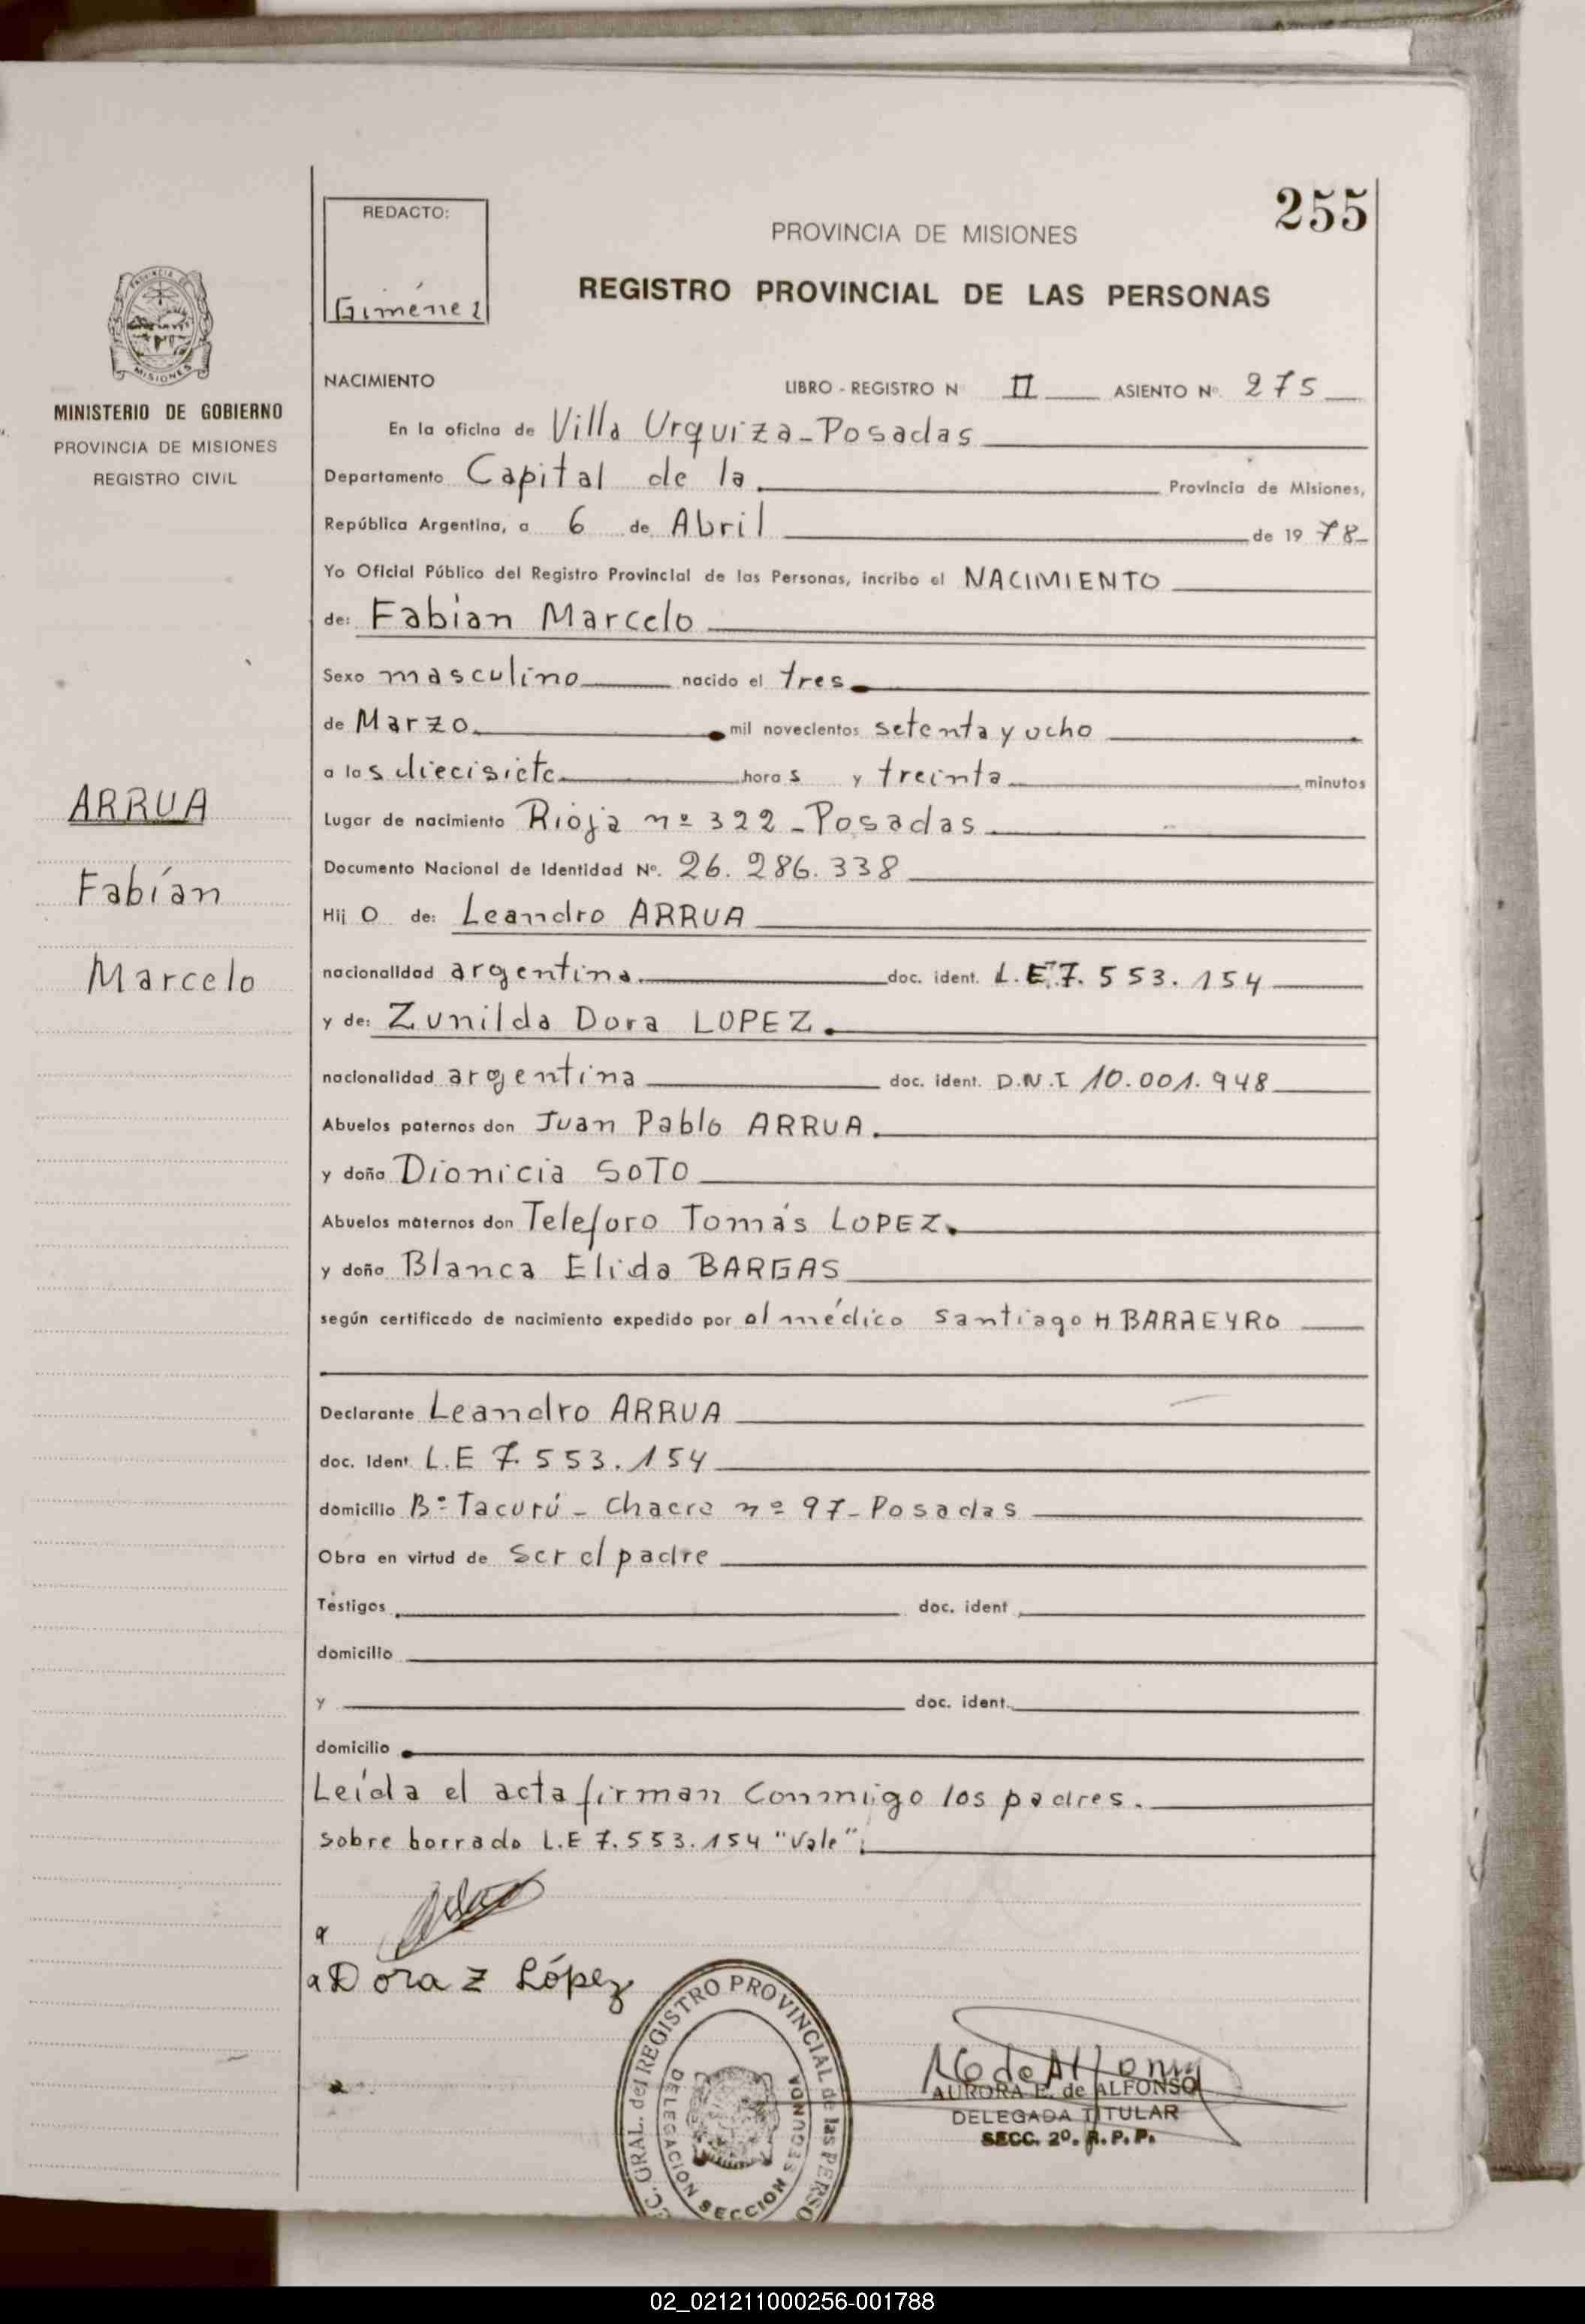 255
REDACTO:
Giménez
PROVINCIA DE MISIONES
REGISTRO PROVINCIAL DE LAS PERSONAS
PROVINCIA DE
MISIONES
MINISTERIO DE GOBIERNO
PROVINCIA DE MISIONES
REGISTRO CIVIL
ARRUA
Fabían
Marcelo
NACIMIENTO LIBRO - REGISTRO N II ASIENTO Nº. 275
En la oficina de Villa Urquiza - Posadas
Departamento Capital de la Provincia de Misiones,
República Argentina, a 6 de Abril de 1978
Yo Oficial Público del Registro Provincial de las Personas, incribo el NACIMIENTO
de: Fabian Marcelo
Sexo masculino nacido el tres
de Marzo mil novecientos setenta y ocho
a las diecisiete horas y treinta minutos
Lugar de nacimiento Rioja nº 322 - Posadas
Documento Nacional de Identidad Nº. 26.286.338
Hijo de: Leandro ARRUA
nacionalidad argentina doc. ident. L.E 7.553.154
y de: Zunilda Dora LOPEZ.
nacionalidad argentina doc. ident. D.N.I 10.001.948
Abuelos paternos don Juan Pablo ARRUA.
y doña Dionicia SOTO
Abuelos maternos don Teleforo Tomás LOPEZ.
y doña Blanca Elida BARGAS
según certificado de nacimiento expedido por el médico Santiago H BARREYRO
Declarante Leandro ARRUA
doc. Ident L.E 7.553.154
domicilio Bº Tacurú - Chacra nº 97 - Posadas
Obra en virtud de ser el padre
Testigos doc. ident
domicilio
y doc. ident.
domicilio
Leída el acta firman conmigo los padres.
sobre borrado L.E 7.553.154 "Vale".
Dora Z López
GRAL. del REGISTRO PROVINCIAL de las PERSO
DELEGACION SECCION SEGUNDA
AURORA E. de ALFONSO
DELEGADA TITULAR
SECC. 2º. R.P.P.
02_021211000256-001788